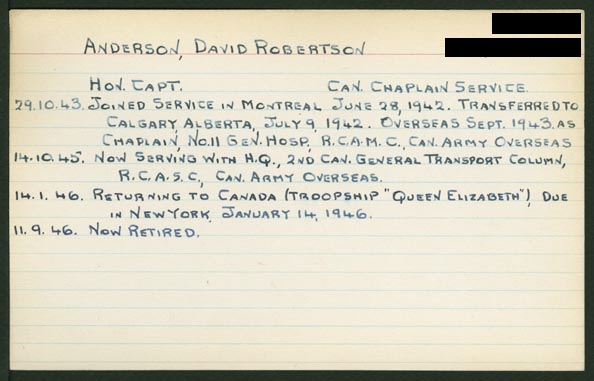 ANDERSON, DAVID ROBERTSON
HON. CAPT. CAN. CHAPLAIN SERVICE.
29.10.43. JOINED SERVICE IN MONTREAL JUNE 28, 1942. TRANSFERRED TO
CALGARY, ALBERTA, JULY 9, 1942. OVERSEAS SEPT. 1943. AS
CHAPLAIN, NO.11 GEN. HOSP., R.C.A.M.C., CAN. ARMY OVERSEAS
14.10.45. NOW SERVING WITH H.Q., 2ND CAN. GENERAL TRANSPORT COLUMN,
R.C.A.S.C., CAN. ARMY OVERSEAS.
14.1.46. RETURNING TO CANADA (TROOPSHIP "QUEEN ELIZABETH"), DUE
IN NEW YORK, JANUARY 14, 1946.
11.9.46. NOW RETIRED.